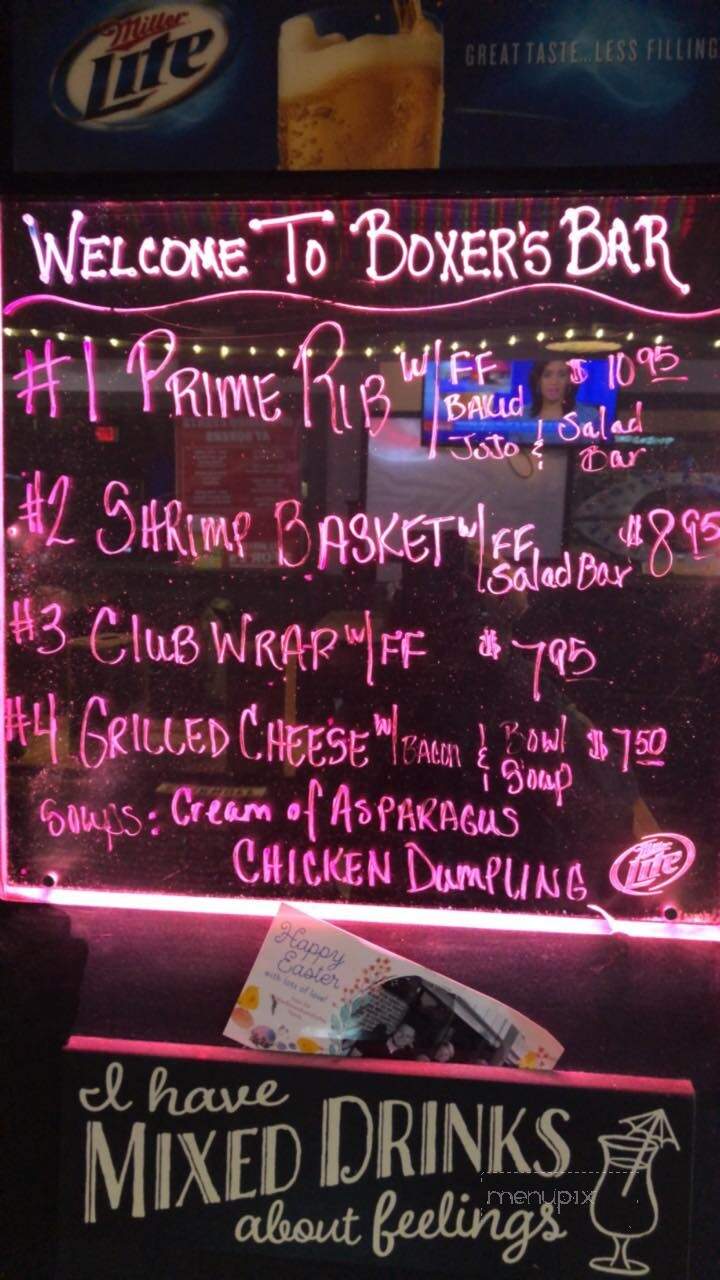 Miller
Lite
GREAT TASTE...LESS FILLING
WELCOME TO BOXER'S BAR
#1 PRIME RIB W/ FF $10.95
BAKed
JoJo & Salad
Bar
#2 SHRIMP BASKET W/ FF $8.95
Salad Bar
#3 CLUB WRAP W/ FF $7.95
#4 GRILLED CHEESE W/ BACON & Bowl $7.50
Soup
Soups: Cream of ASPARAGUS
CHICKEN DUMPLING
Miller
Lite
Happy
Easter
with lots of love!
I have
MIXED DRINKS
about feelings
menupix